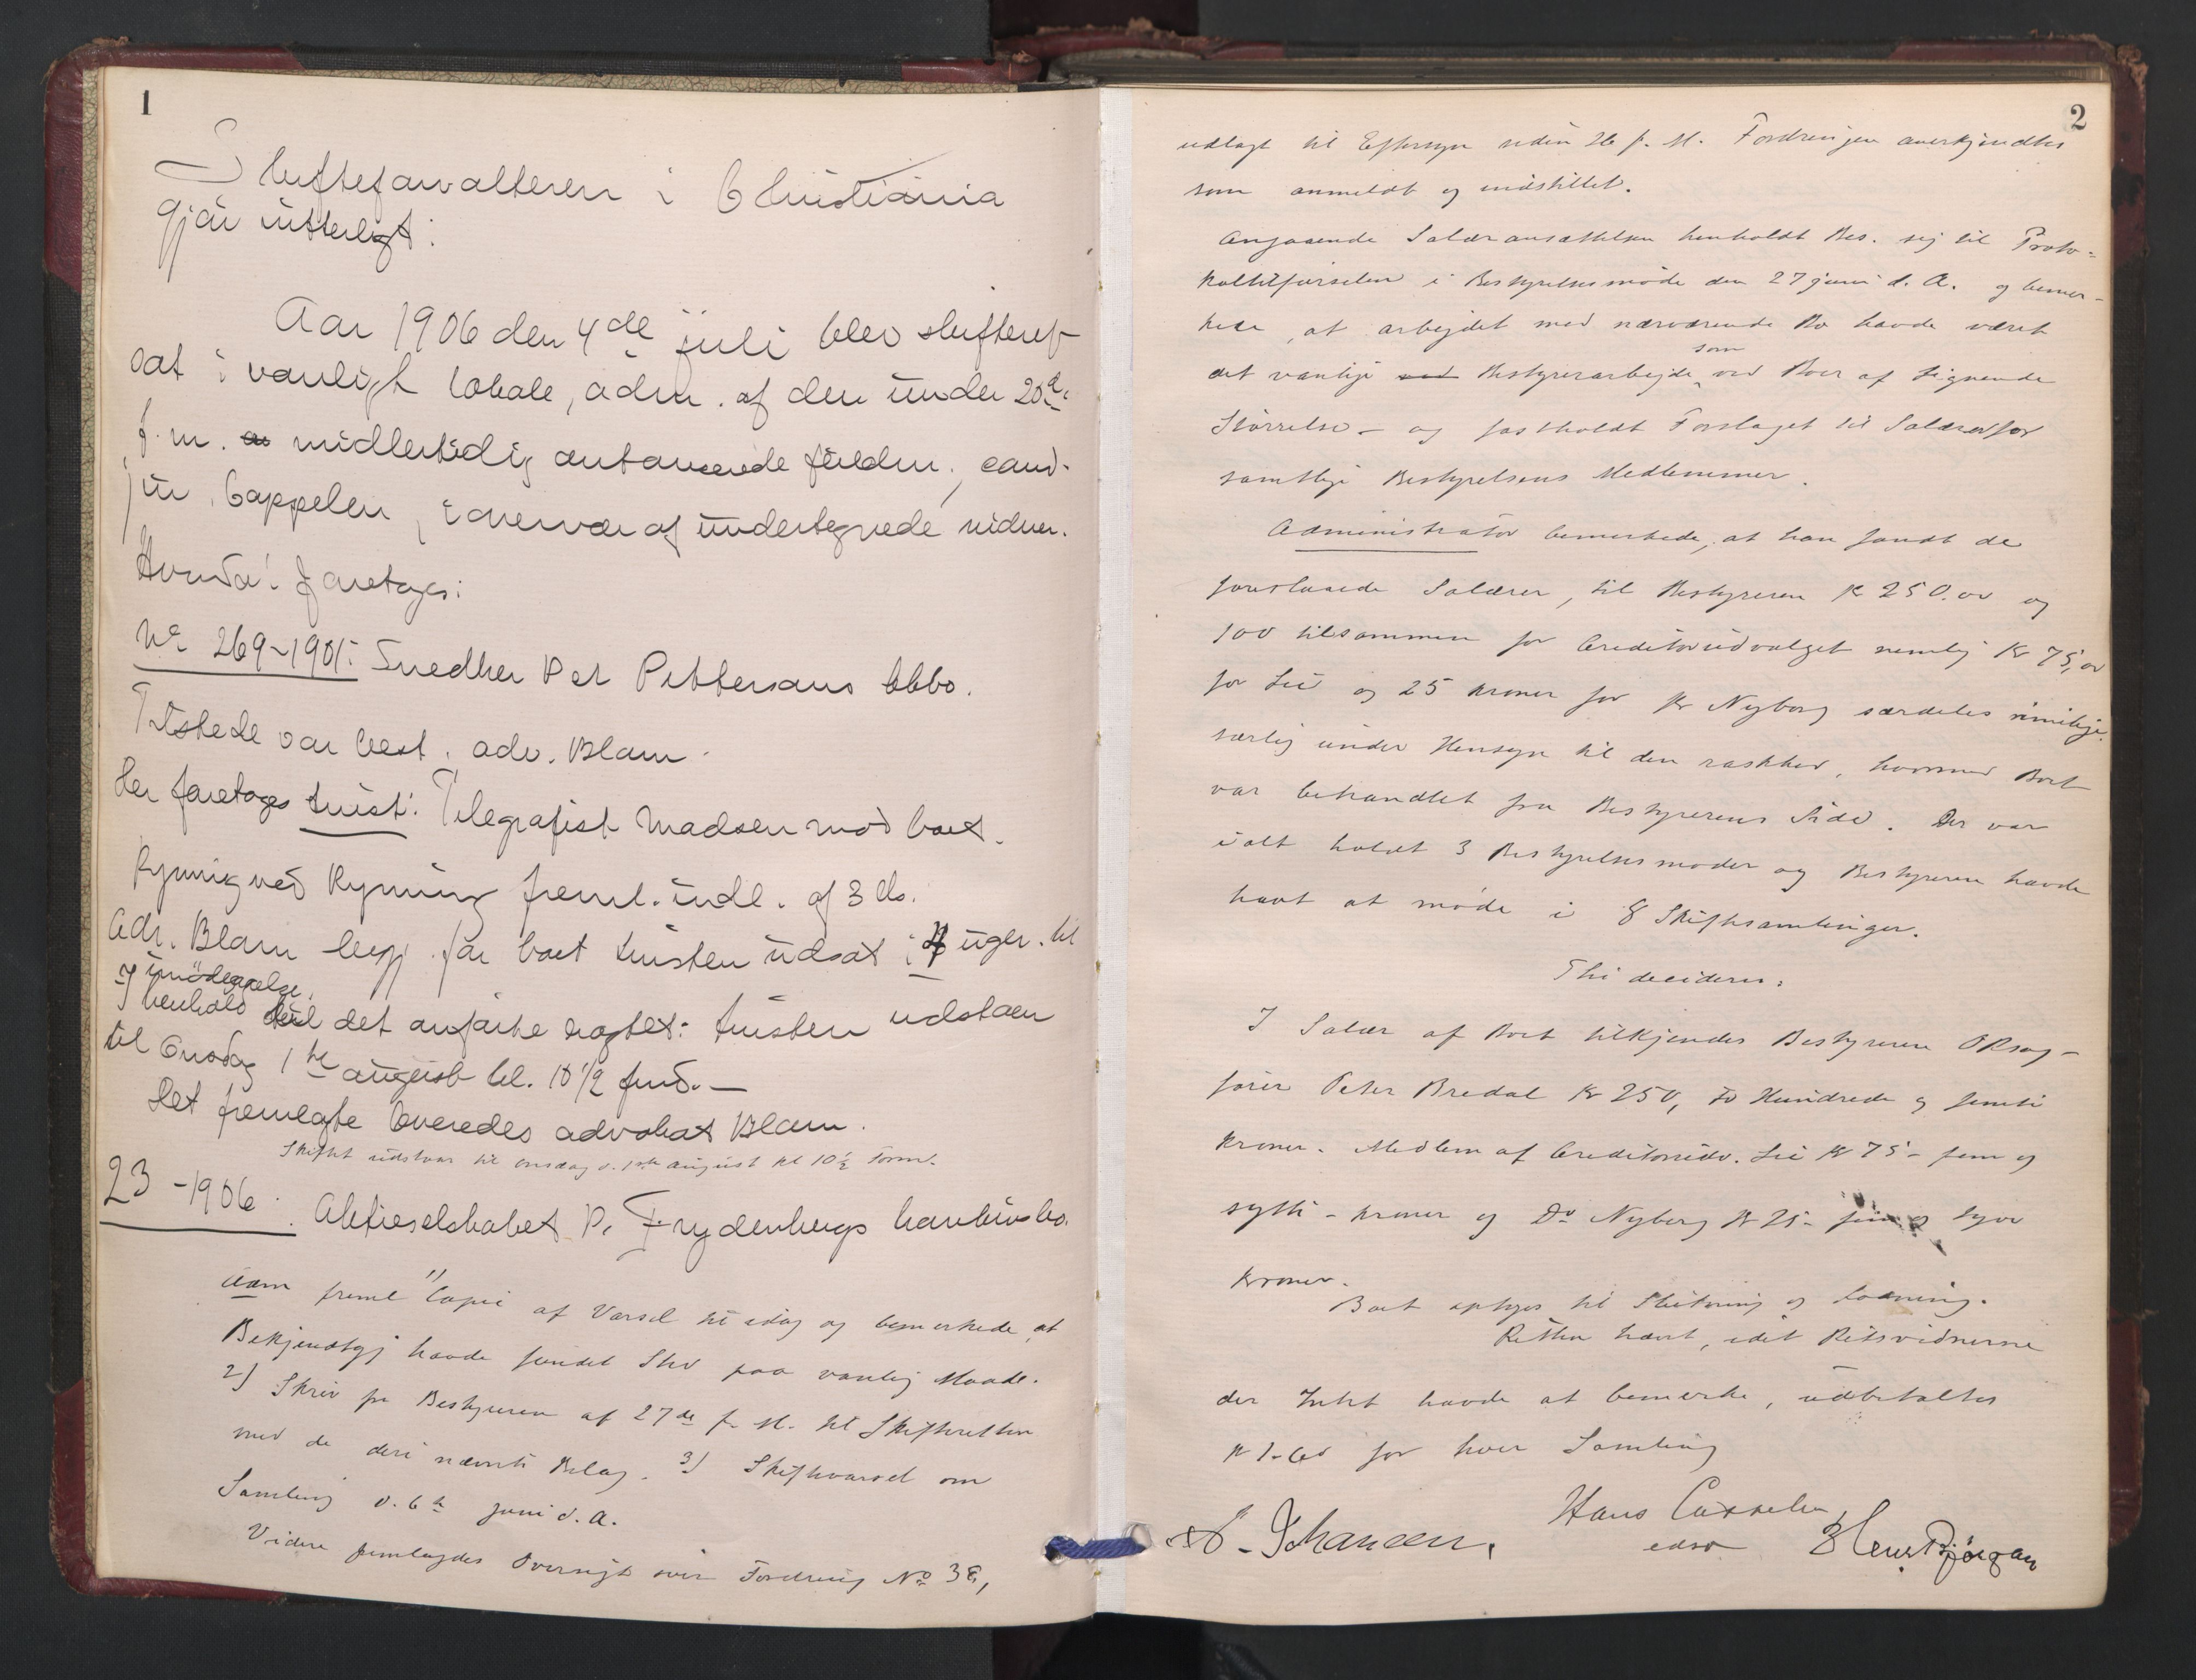 1
Skifteforvalteren i Christiania
gjør vitterligt:
Aar 1906 den 4de juli blev skifteret
sat i vanligt lokale, adm. af den under 20de
f. m. midlertidig antagne fuldm., cand.
jur. Cappelen, i overvær af undertegnede vidner.
Hvorda! foretoges:
No 269-1905: Snedker Per Pettersens kkbo.
Tilstede var best. adv. Blom.
Der foretoges tvist: Telegrafist Madsen mod boet.
Rynnig ved Rynning freml. indl. af 3 ds.
Adv. Blom beg. for boet tvisten udsat i 4 uger. til
imødegaaelse.
I henhold til det anførte vogtet: tvisten udstaar
til Onsdag 1te august kl. 10 1/2 fmd. -
Det fremlagte leveredes advokat Blom.
Skiftet udstaar til onsdag d. 1ste august kl 10 1/2 Form.
23-1906. Aktieselskabet P. Frydenbergs konkursbo.
Adm freml 1) Copi af Varsel til idag og bemerkede at
Bekjendtgj havde fundet Sted paa vanlig Maade.
2) Skriv fra Bestyreren af 27de f. M. til Skifteretten
med de deri nævnte Bilag. 3) Skiftevarsel om
Samling d. 6te juni d. A.
Videre fremlagdes Oversigt over Fordring No 38,
2
udlagt til Eftersyn siden 26 f. M. Fordringen anerkjendtes
som anmeldt og indstillet.
Angaaende Salæransættelsen henholdt Bes. sig til Proto-
koltilførselen i Bestyrelsesmøde den 27 juni d. A. og bemer-
kede, at arbejdet med nærværende Bo havde været
som
det vanlige Bestyrerarbejde ved Boer af lignende
Størrelse - og fastholdt Forslaget til Salærer for
samtlige Bestyrelsens Medlemmer.
Administrator bemerkede, at han fandt de
foreslaaede Salærer, til Bestyreren K 250.00 og
100 tilsammen for Creditorudvalget nemlig Kr 75,00
for Lie og 25 kroner for Kr Nyborg særdeles rimelige,
særlig under Hensyn til den raskhed, hvormed Boet
var behandlet fra Bestyrerens Side. Der var
ialt holdt 3 Bestyrelsesmøder og Bestyreren havde
havt at møde i 8 Skiftesamlinger.
Thi decideres:
I Salær af Boet tilkjendes Bestyreren ORsag-
fører Peter Bredal Kr 250, to Hundrede og femti
kroner. Medlem af Creditorudv. Lie Kr 75 - fem og
sytti - kroner og Do Nyborg Kr 25 - fem og tyve
kroner.
Boet optages til Slutning og Lodning.
Retten hævt, idet Retsvidnerne
der Intet havde at bemerke, udbetaltes
K 1-60 for hver Samling
Hans Cappelen
edsv
A. Johansen.